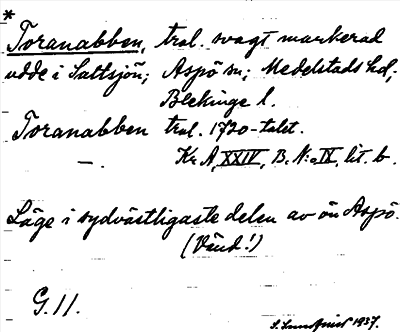 *
Toranabben, trol. svagt markerad
udde i Saltsjön; Aspö sn; Medelstads hd,
Blekinge l.
Toranabben trol. 1720-talet.
—. Kr. A, XXIV, B. N:o IX, lit. b.
Läge i sydvästligaste delen av ön Aspö.
(Vänd!)
G. 11.
S. Lundqvist 1937.